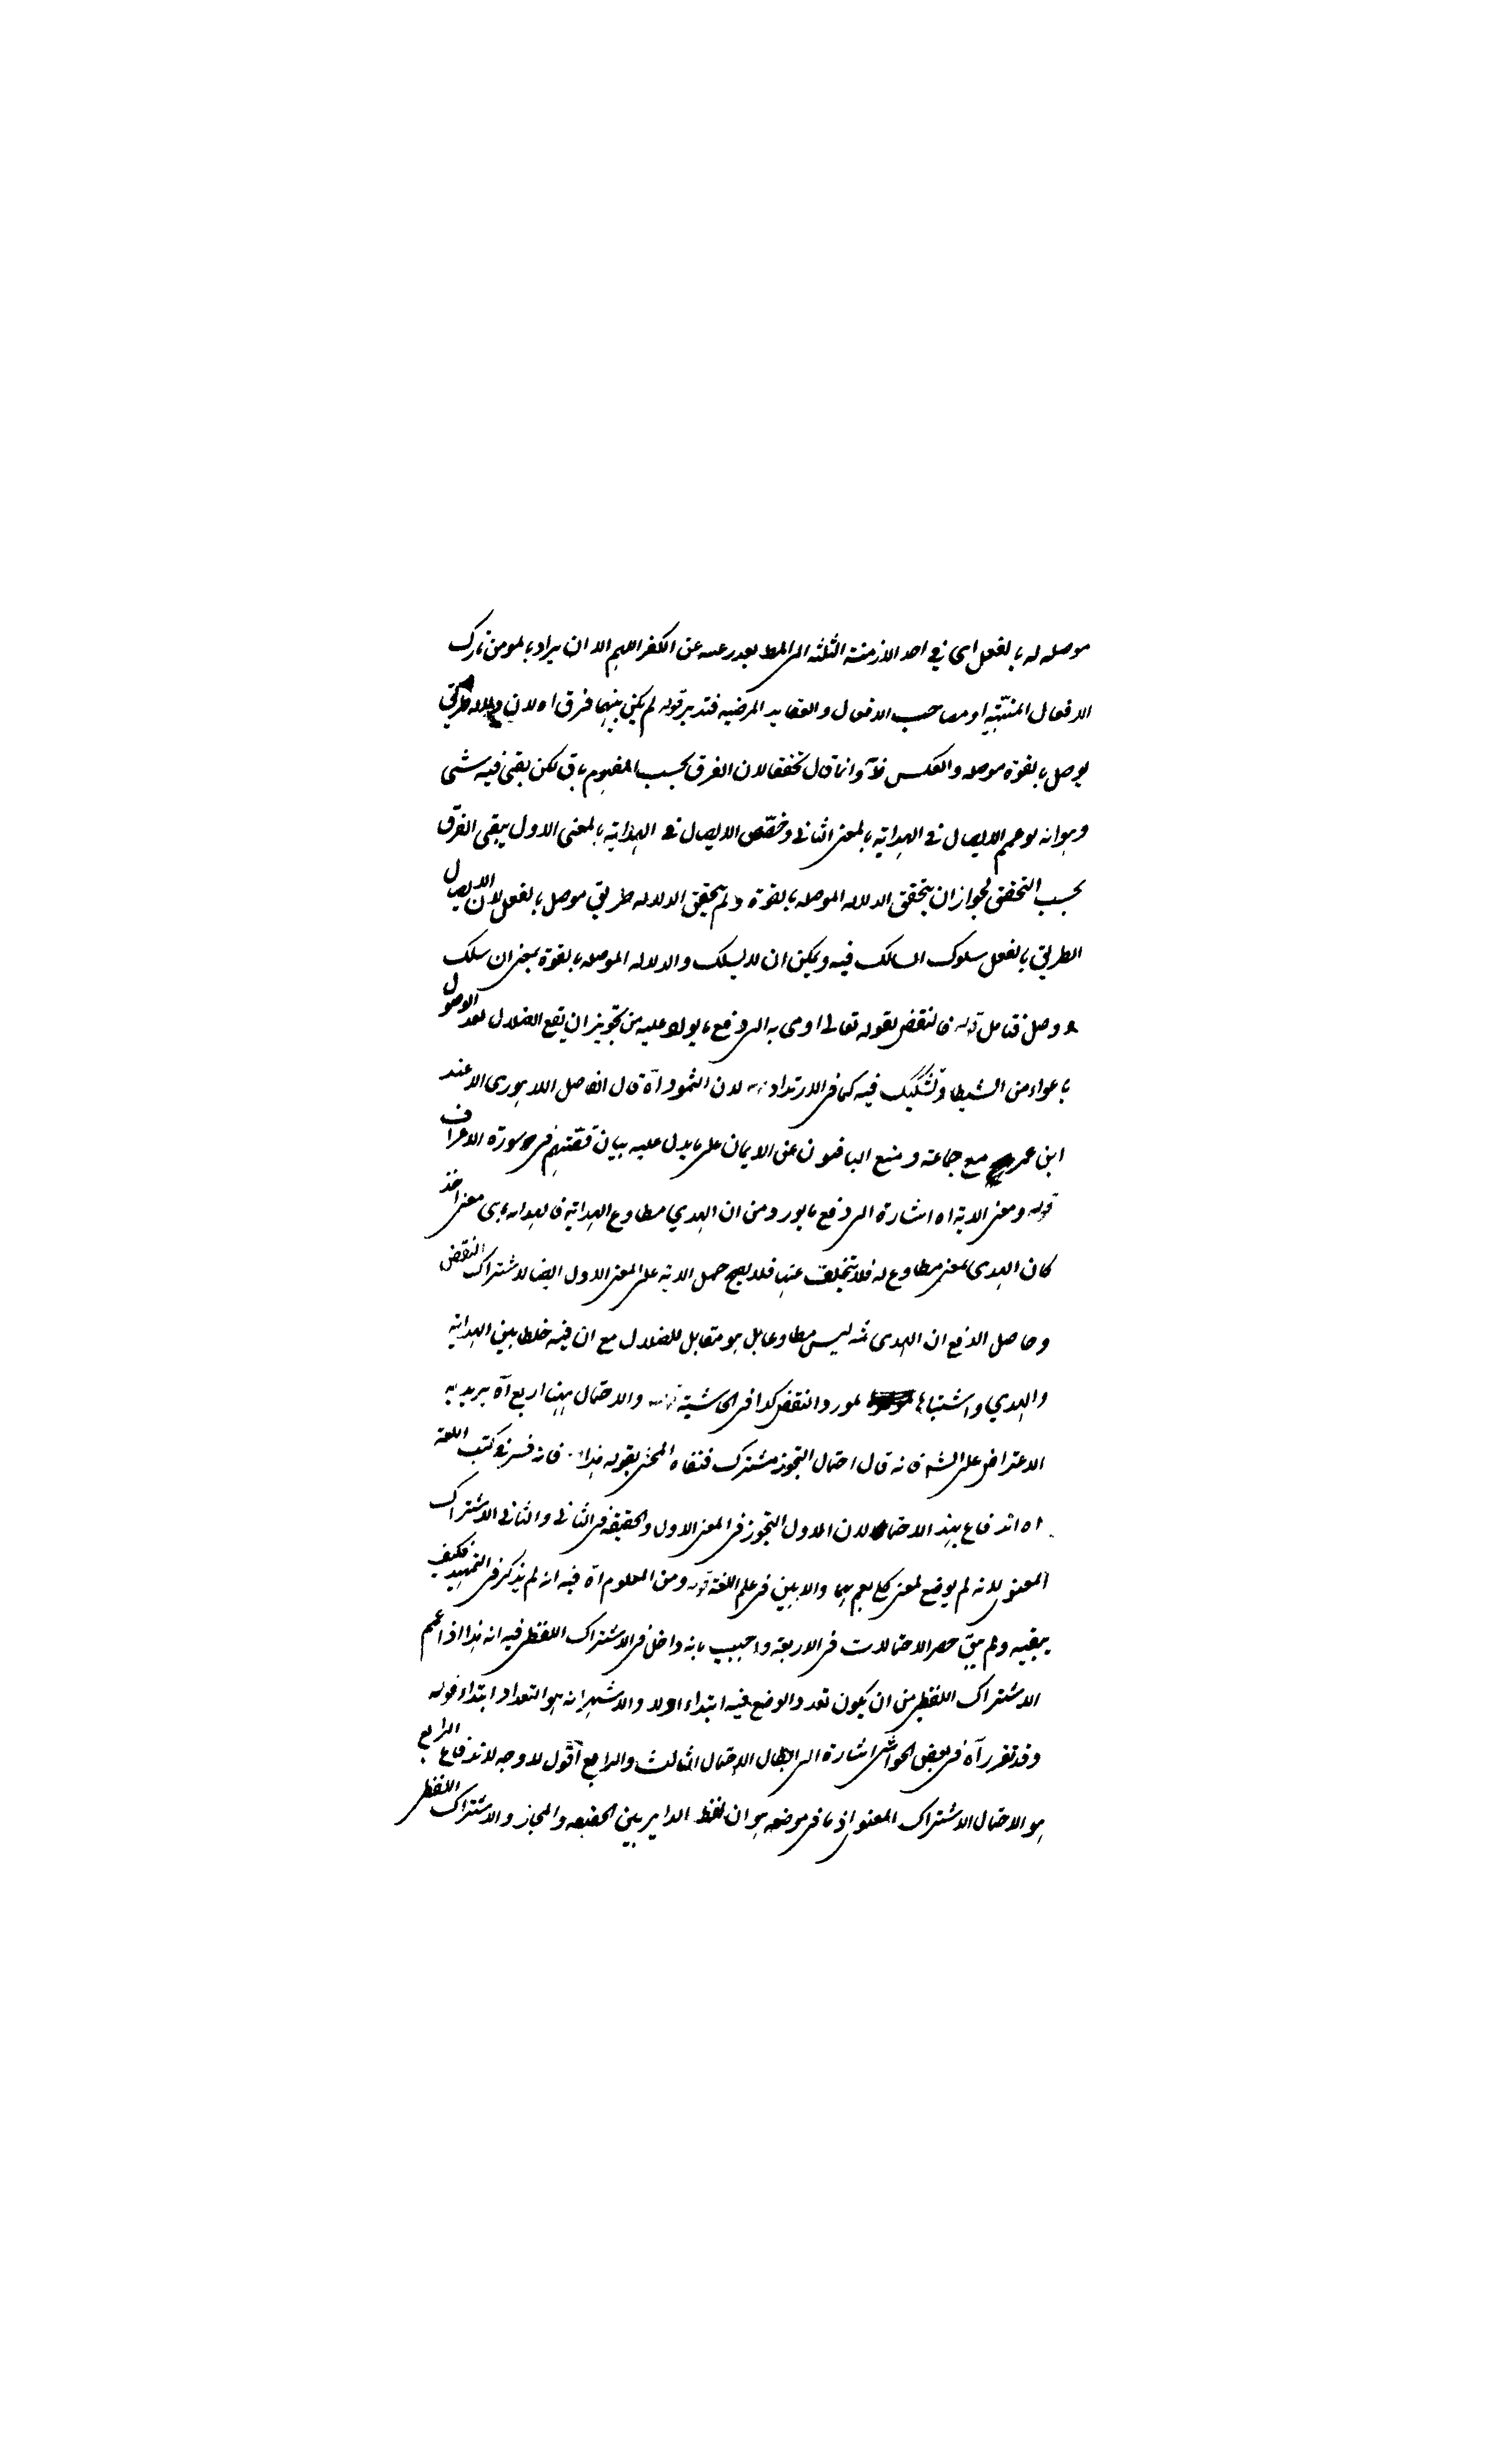 موصله له بالفعل اى فى احد الازمنة الثلثة الى المط بعدرعىه عن الكفر اللهم الا ان يراد بالمومن تارك
الافعال المنتهيه او مصاحب الافعال والعقايد المرضيه فتدبر قوله لم يكن بينهما فرق اه لان طريق
يوصل بالقوة موصله والعكس وانما قال تحققا لان الفرق بحسب المفهوم باق لكن بقى فيه شى
وهو انه لو عمم الايصال فى الهداية بالمعنى الثانى وخصص الايصال فى الهداية بالمعنى الاول يبقى الفرق
بحسب التحقق لجواز ان يتحقق الدلاله الموصله بالقوة ولم يتحقق الدلاله طريق موصل بالفعل لان الايصال
الطريق بالفعل سلوك السالك فيه ويمكن ان لا يسلك والدلاله الموصله بالقوة بمعنى ان سلك
وصل فتامل قوله فالنقض بقوله تعالى اومى به الى دفع ما يورد عليه من تجويز ان يقع الضلال بعد الوصول
باغواء من الشيطان وتشكيك فيه كما فى الارتداد قوله لان الثمود آه قال الفاضل اللاهورى الا عند
ابن عمر مع جماعة ومنع الباقون عن الايمان على ما يدل عليه بيان قصتهم فى سورة الاعراف
قوله ومعنى الاية اه اشارة الى دفع ما يورد من ان الهدي مطاوع الهداية فالهداية باى معنى اخذ
كان الهدى بمعنى مطاوع له فلا يتخلف عنها فلا يصح حمل الاية على المعنى الاول ايضا لاشتراك النقض
وحاصل الدفع ان الهدى ثمه ليس مطاوعا بل هو مقابل للضلال مع ان فيه خلطا بين الهداية
والهدي واشتباها لمورد النقض كذا فى الحاشية قوله والاحتمال ههنا اربع آه يريد به
الاعتراض على الشه فانه قال احتمال التجوز مشترك فنفاه المحشى بقوله هذا قوله فانه فسر فى كتب اللغة
اه اندفاع بهذا الاحتمال لان الاول التجوز فى المعنى الاول والحقيقة فى الثانى والثانى الاشتراك
المعنوى لانه لم يوضع لمعنى كلى يعمهما والا بين فى علم اللغة قوله ومن المعلوم آه فيه انه لم يذكر فى التمهيد فكيف
ينفيه ولم يبق حصر الاحتمالات فى الاربعة واجيب بانه داخل فى الاشتراك اللفظى فيه انه هذا اذا عمم
الاشتراك اللفظى من ان يكون تعدد الوضع فيه ابتداء او لا والاشهر انه هو التعداد ابتداء قوله
وقد تقرر آه فى بعض الحواشى اشارة الى ابطال الاحتمال الثالث والرابع اقول لا وجه لاندفاع الرابع
هو الاحتمال الاشتراك المعنوى اذ ما فى موضعه هو ان لفظ الداير بين الحقيقه والمجاز والاشتراك اللفظى